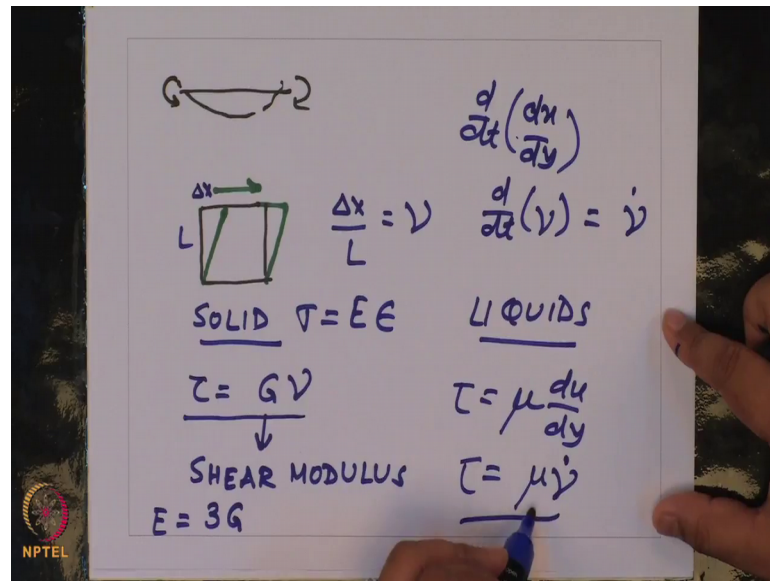 d/dt (dx/dy)
Δx
L
Δx/L = ν
d/dt (ν) = ν̇
SOLID σ = E ϵ
LIQUIDS
τ = G ν
τ = μ du/dy
SHEAR MODULUS
τ = μ ν̇
E = 3G
NPTEL